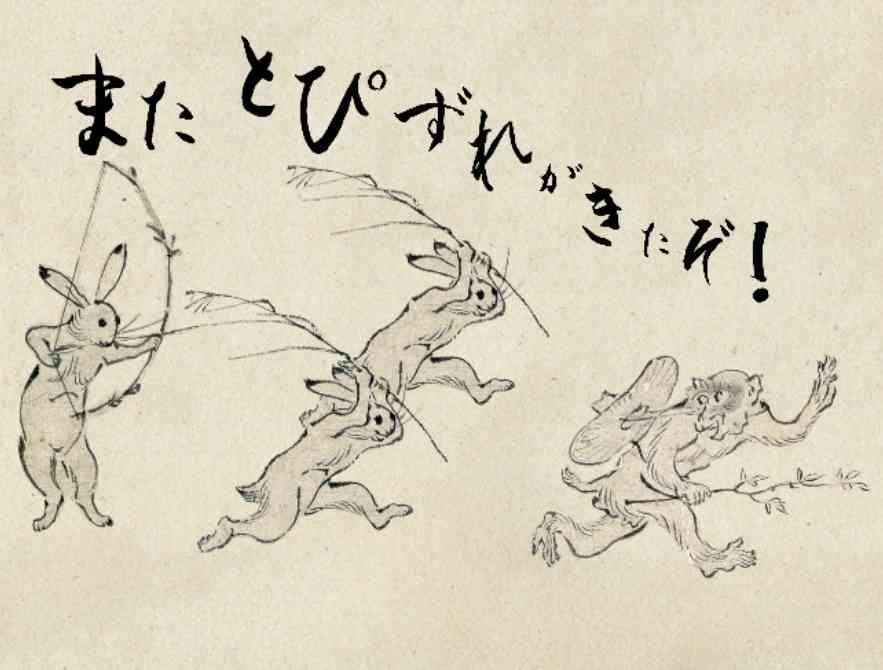 またとぴずれがきたぞ!